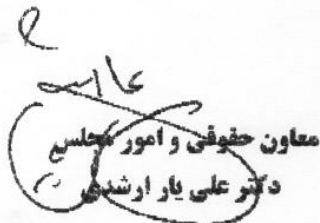 معاون حقوقی و امور مجلس
دکتر علی یار ارشدی